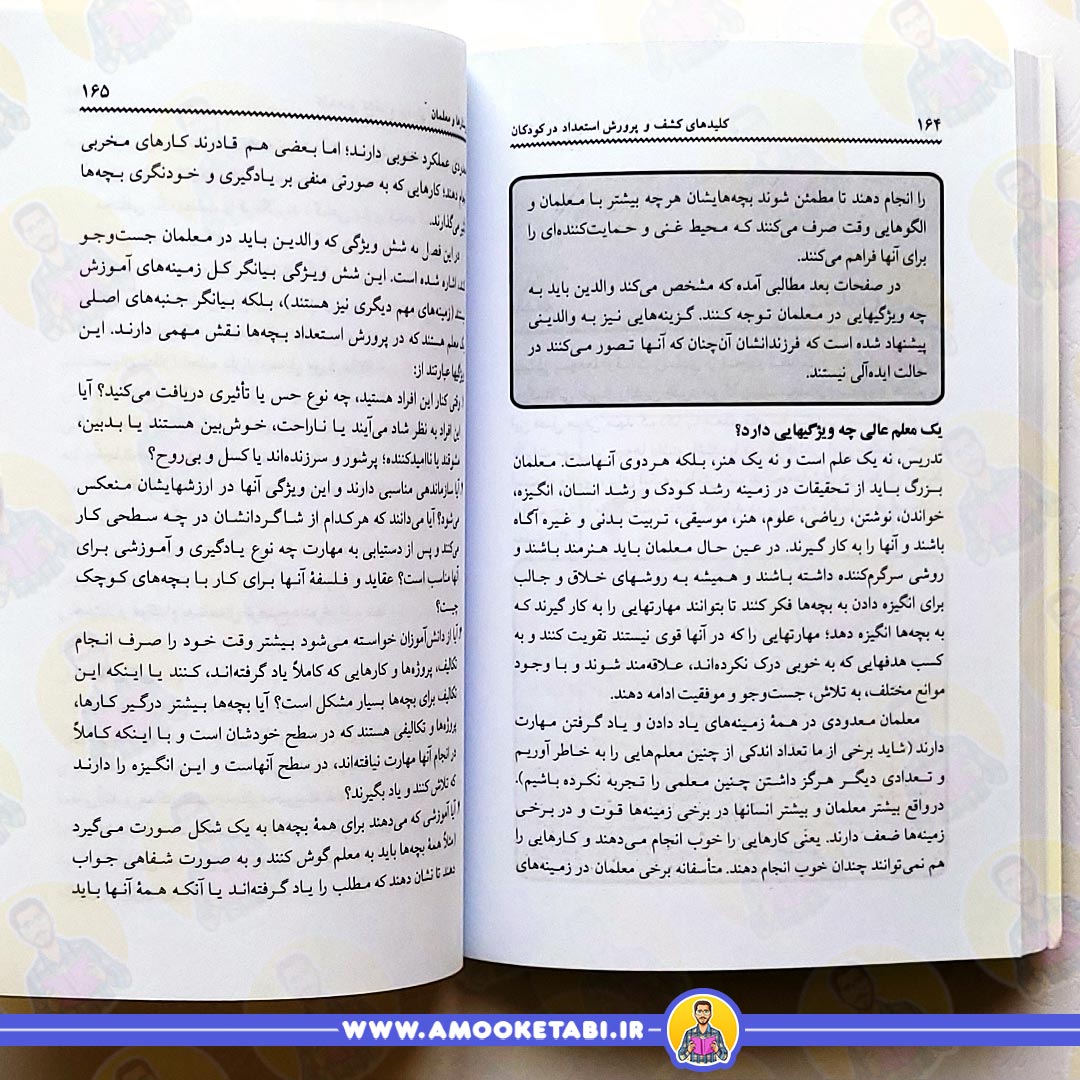 ۱۶۴
کلیدهای کشف و پرورش استعداد در کودکان
را انجام دهند تا مطمئن شوند بچه‌هایشان هرچه بیشتر با معلمان و
الگوهایی وقت صرف می‌کنند که محیط غنی و حمایت‌کننده‌ای را
برای آنها فراهم می‌کنند.
در صفحات بعد مطالبی آمده که مشخص می‌کند والدین باید به
چه ویژگیهایی در معلمان توجه کنند. گزینه‌هایی نیز به والدینی
پیشنهاد شده است که فرزندانشان آن‌چنان که آنها تصور می‌کنند در
حالت ایده‌آلی نیستند.
یک معلم عالی چه ویژگیهایی دارد؟
تدریس، نه یک علم است و نه یک هنر، بلکه هردوی آنهاست. معلمان
بزرگ باید از تحقیقات در زمینه رشد کودک و رشد انسان، انگیزه،
خواندن، نوشتن، ریاضی، علوم، هنر، موسیقی، تربیت بدنی و غیره آگاه
باشند و آنها را به کار گیرند. در عین حال معلمان باید هنرمند باشند و
روشی سرگرم‌کننده داشته باشند و همیشه به روشهای خلاق و جالب
برای انگیزه دادن به بچه‌ها فکر کنند تا بتوانند مهارتهایی را به کار گیرند که
به بچه‌ها انگیزه دهد؛ مهارتهایی را که در آنها قوی نیستند تقویت کنند و به
کسب هدفهایی که به خوبی درک نکرده‌اند، علاقه‌مند شوند و با وجود
موانع مختلف، به تلاش، جست‌وجو و موفقیت ادامه دهند.
معلمان معدودی در همهٔ زمینه‌های یاد دادن و یاد گرفتن مهارت
دارند (شاید برخی از ما تعداد اندکی از چنین معلم‌هایی را به خاطر آوریم
و تعدادی دیگر هرگز داشتن چنین معلمی را تجربه نکرده باشیم).
درواقع بیشتر معلمان و بیشتر انسانها در برخی زمینه‌ها قوت و در برخی
زمینه‌ها ضعف دارند. یعنی کارهایی را خوب انجام می‌دهند و کارهایی را
هم نمی‌توانند چندان خوب انجام دهند. متأسفانه برخی معلمان در زمینه‌های
و معلمان
۱۶۵
عملکرد خوبی دارند؛ اما بعضی هم قادرند کارهای مخربی
دهند؛ کارهایی که به صورتی منفی بر یادگیری و خودنگری بچه‌ها
می‌گذارند.
در این فصل به شش ویژگی که والدین باید در معلمان جست‌وجو
اشاره شده است. این شش ویژگی بیانگر کل زمینه‌های آموزش
(زمینه‌های مهم دیگری نیز هستند)، بلکه بیانگر جنبه‌های اصلی
معلم هستند که در پرورش استعداد بچه‌ها نقش مهمی دارند. این
ویژگیها عبارتند از:
وقتی کنار این افراد هستید، چه نوع حس یا تأثیری دریافت می‌کنید؟ آیا
این افراد به نظر شاد می‌آیند یا ناراحت، خوش‌بین هستند یا بدبین،
یا ناامیدکننده؛ پرشور و سرزنده‌اند یا کسل و بی‌روح؟
آیا سازماندهی مناسبی دارند و این ویژگی آنها در ارزشهایشان منعکس
می‌شود؟ آیا می‌دانند که هرکدام از شاگردانشان در چه سطحی کار
می‌کند و پس از دستیابی به مهارت چه نوع یادگیری و آموزشی برای
آنها مناسب است؟ عقاید و فلسفهٔ آنها برای کار با بچه‌های کوچک
چیست؟
آیا از دانش‌آموزان خواسته می‌شود بیشتر وقت خود را صرف انجام
تکالیف، پروژه‌ها و کارهایی که کاملاً یاد گرفته‌اند، کنند یا اینکه این
تکالیف برای بچه‌ها بسیار مشکل است؟ آیا بچه‌ها بیشتر درگیر کارها،
پروژه‌ها و تکالیفی هستند که در سطح خودشان است و با اینکه کاملاً
در انجام آنها مهارت نیافته‌اند، در سطح آنهاست و این انگیزه را دارند
که تلاش کنند و یاد بگیرند؟
آیا آموزشی که می‌دهند برای همهٔ بچه‌ها به یک شکل صورت می‌گیرد
(مثلاً همهٔ بچه‌ها باید به معلم گوش کنند و به صورت شفاهی جواب
دهند تا نشان دهند که مطلب را یاد گرفته‌اند یا آنکه همهٔ آنها باید
WWW.AMOOKETABI.IR